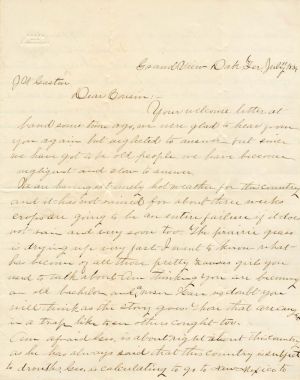 Grand View Dak Ter July
J A Castor
Dear Cousin:-
Your welcome letter at
hand some time ago, we were glad to hear from
you again but neglected to answer but since
we have got to be old people we have become
negligent and slow to answer.
We are having extremely hot weather for this country
and it has not rained for about three weeks
crops are going to be an entire failure if it does
not rain and very soon too. The prairie grass
is drying up very fast. I want to know what
has become of all those pretty Kansas girls you
used to talk about Can think you are
an old bachelor and no doubt you
will think as the story goes that
in a trap like to see others caught too.
I am afraid Geo, is about right about this country
as he has always said that this country is subject
to drouths, Geo, is calculating to go to New Mexico to